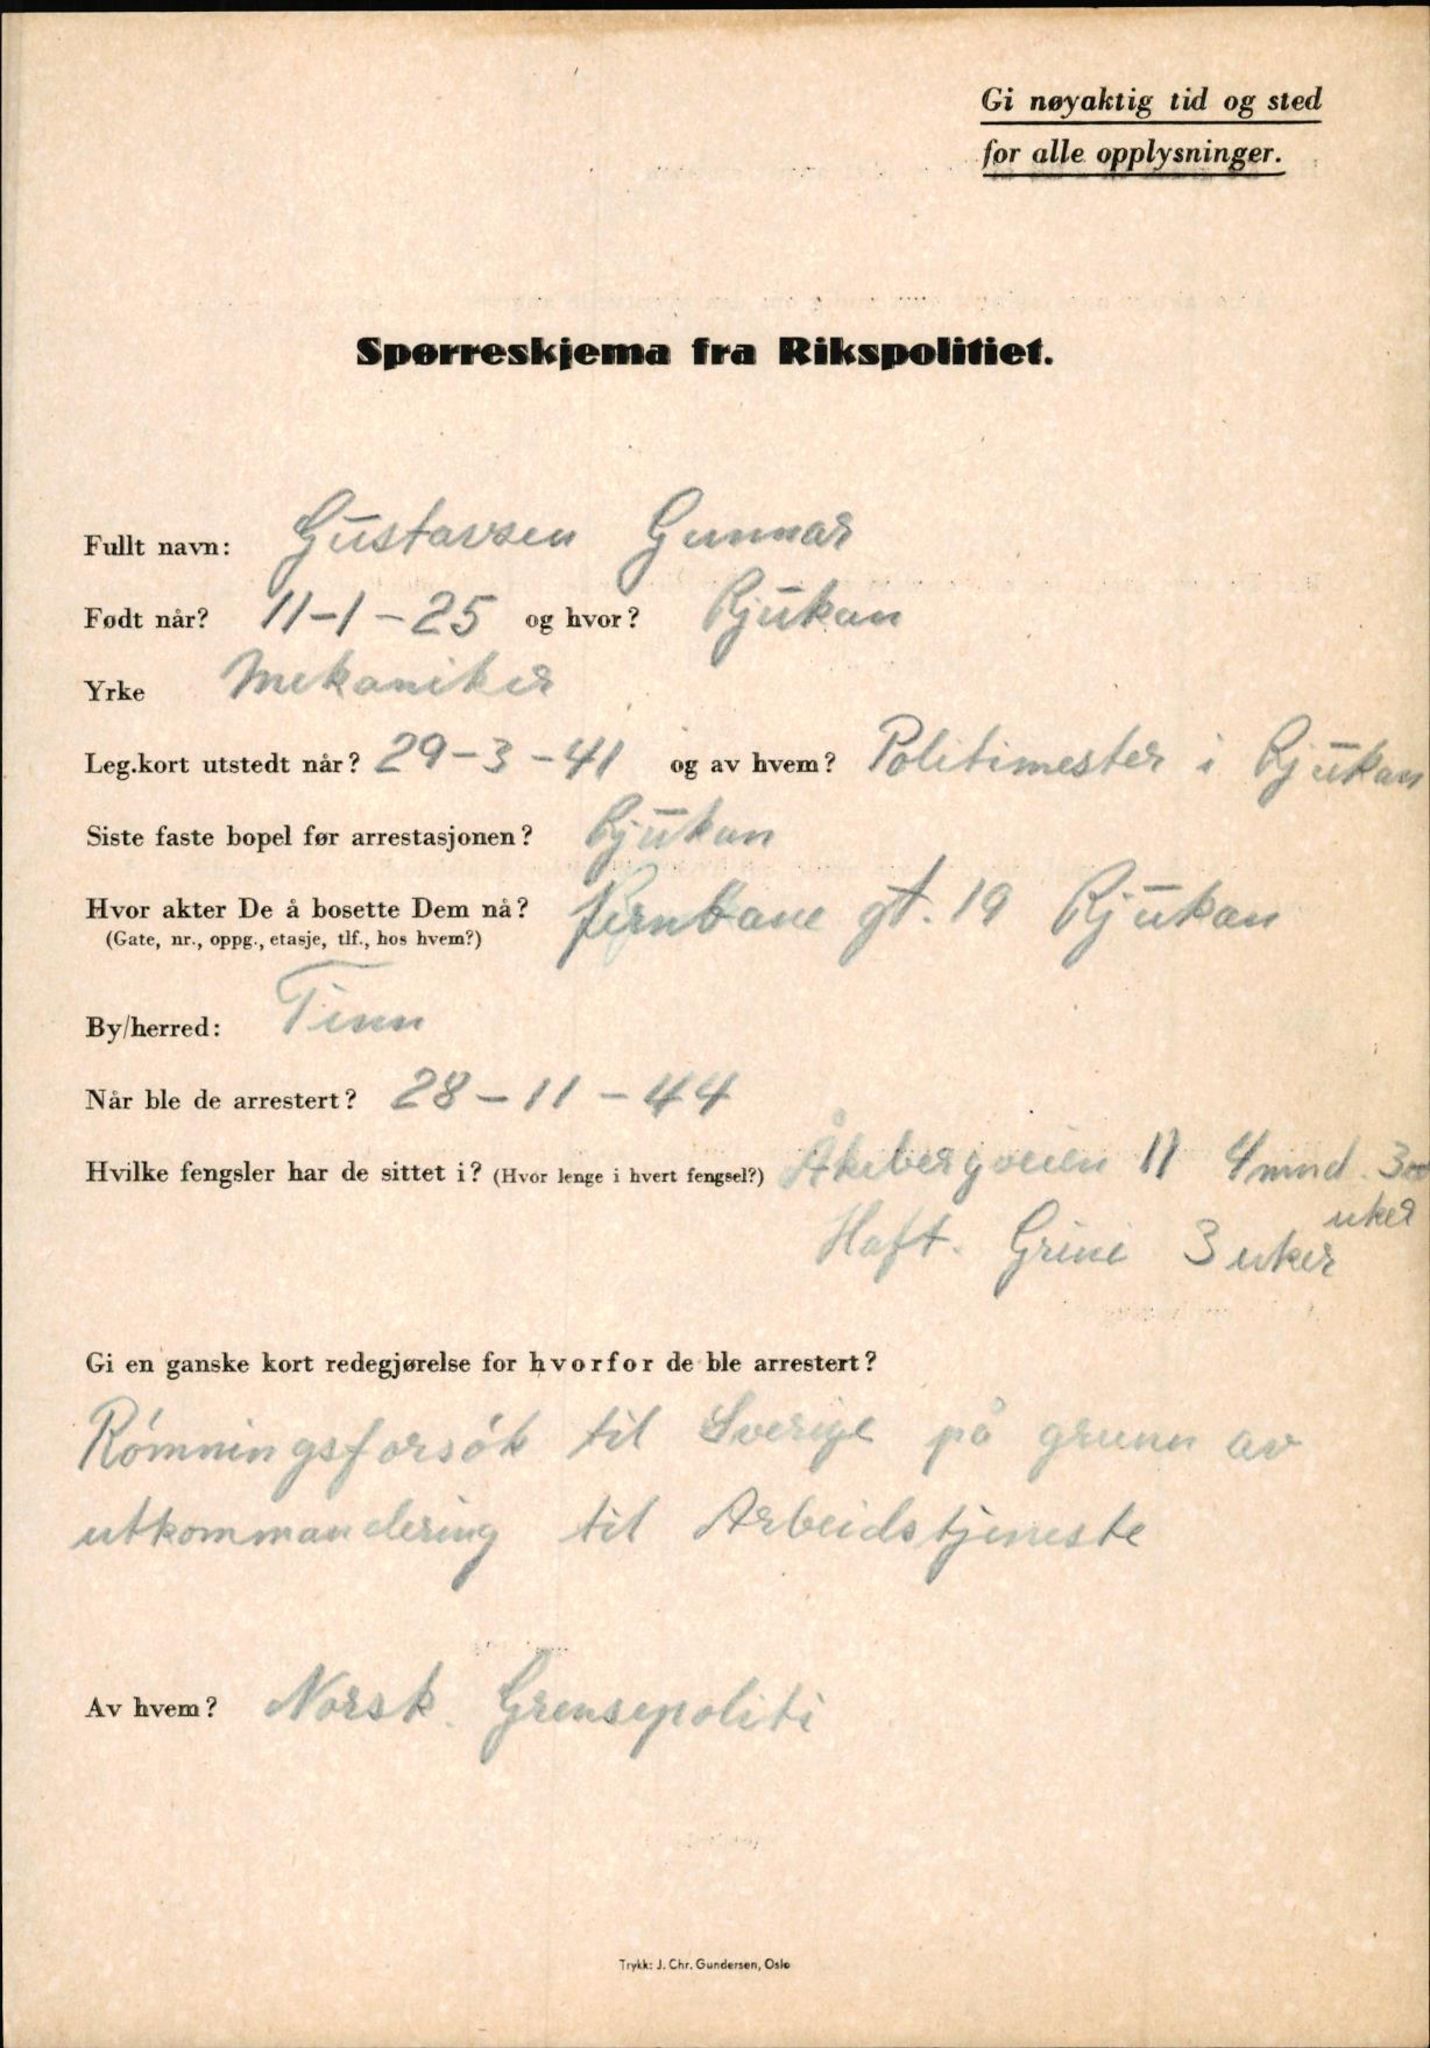 Gi nøyaktig tid og sted
for alle opplysninger.
Spørreskjema fra Rikspolitiet.
Fullt navn: Gustavsen Gunnar
Født når? 11-1-25 og hvor? Rjukan
Yrke Mekaniker
Leg.kort utstedt når? 29-3-41 og av hvem? Politimester i Rjukan
Siste faste bopel før arrestasjonen? Rjukan
Hvor akter De å bosette Dem nå? Jernbane gt. 19 Rjukan
(Gate, nr., oppg., etasje, tlf., hos hvem?)
By/herred: Tinn
Når ble de arrestert? 28-11-44
Hvilke fengsler har de sittet i? (Hvor lenge i hvert fengsel?) Åkebergveien 11 4 mnd. 3
uker
Haft. Grini 3 uker
Gi en ganske kort redegjørelse for hvorfor de ble arrestert?
Rómningsforsók til Sverige på grunn av
utkommandering til Arbeidstjeneste
Av hvem? Norsk. Grensepoliti
Trykk: J. Chr. Gundersen, Oslo